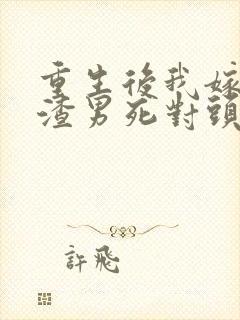 重生後我嫁
渣男死對頭
許飛